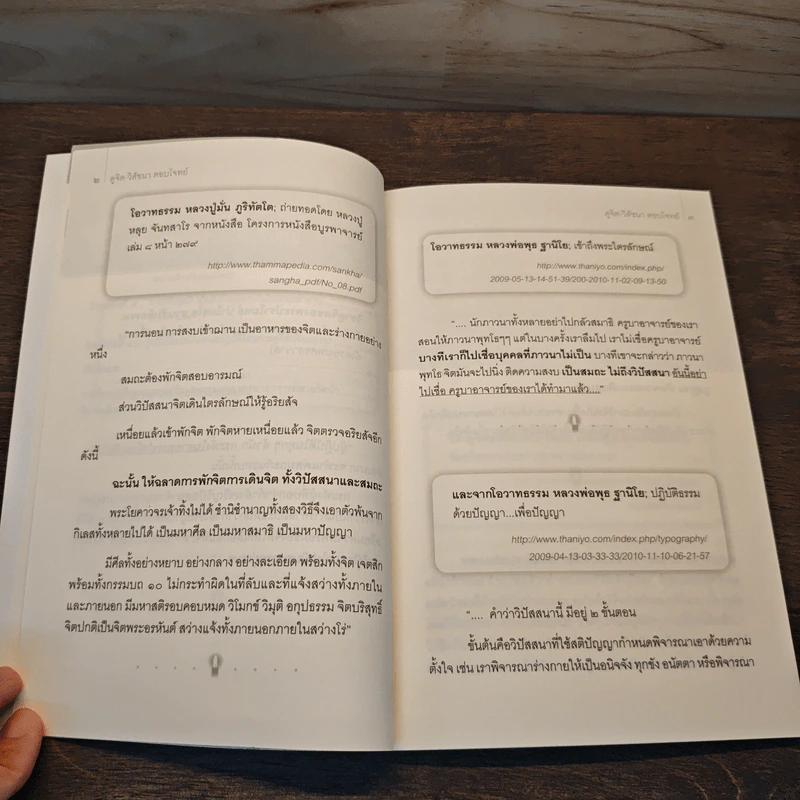 ๒ ดูจิต วิสัชนา ตอบโจทย์
โอวาทธรรม หลวงปู่มั่น ภูริทัตโต; ถ่ายทอดโดย หลวงปู่
หลุย จันทสาโร จากหนังสือ โครงการหนังสือบูรพาจารย์
เล่ม ๘ หน้า ๒๗๙
http://www.thammapedia.com/sankha/
sangha_pdf/No_08.pdf
"การนอน การสงบเข้าฌาน เป็นอาหารของจิตและร่างกายอย่าง
หนึ่ง
สมถะต้องพักจิตสอบอารมณ์
ส่วนวิปัสสนาจิตเดินไตรลักษณ์ให้รู้อริยสัจ
เหนื่อยแล้วเข้าพักจิต พักจิตหายเหนื่อยแล้ว จิตตรวจอริยสัจอีก
ดังนี้
ฉะนั้น ให้ฉลาดการพักจิตการเดินจิต ทั้งวิปัสสนาและสมถะ
พระโยคาวจรเจ้าทิ้งไม่ได้ ชำนิชำนาญทั้งสองวิธีจึงเอาตัวพ้นจาก
กิเลสทั้งหลายไปได้ เป็นมหาศีล เป็นมหาสมาธิ เป็นมหาปัญญา
มีศีลทั้งอย่างหยาบ อย่างกลาง อย่างละเอียด พร้อมทั้งจิต เจตสิก
พร้อมทั้งกรรมบถ ๑๐ ไม่กระทำผิดในที่ลับและที่แจ้งสว่างทั้งภายใน
และภายนอก มีมหาสติรอบคอบหมด วิโมกข์ วิมุติ อกุปธรรม จิตบริสุทธิ์
จิตปกติเป็นจิตพระอรหันต์ สว่างแจ้งทั้งภายนอกภายในสว่างโร่"
ดูจิต วิสัชนา ตอบโจทย์ ๓
โอวาทธรรม หลวงพ่อพุธ ฐานิโย; เข้าถึงพระไตรลักษณ์
http://www.thaniyo.com/index.php/
2009-05-13-14-51-39/200-2010-11-02-09-13-50
".... นักภาวนาทั้งหลายอย่าไปกลัวสมาธิ ครูบาอาจารย์ของเรา
สอนให้ภาวนาพุทโธๆๆ แต่ในบางครั้งเราลืมไป เราไม่เชื่อครูบาอาจารย์
บางทีเราก็ไปเชื่อบุคคลที่ภาวนาไม่เป็น บางทีเขาจะกล่าวว่า ภาวนา
พุทโธ จิตมันจะไปนิ่ง ติดความสงบ เป็นสมถะ ไม่ถึงวิปัสสนา อันนี้อย่า
ไปเชื่อ ครูบาอาจารย์ของเราได้ทำมาแล้ว...."
และจากโอวาทธรรม หลวงพ่อพุธ ฐานิโย; ปฏิบัติธรรม
ด้วยปัญญา...เพื่อปัญญา
http://www.thaniyo.com/index.php/typography/
2009-04-13-03-33-33/2010-11-10-06-21-57
".... คำว่าวิปัสสนานี้ มีอยู่ ๒ ขั้นตอน
ขั้นต้นคือวิปัสสนาที่ใช้สติปัญญากำหนดพิจารณาเอาด้วยความ
ตั้งใจ เช่น เราพิจารณาร่างกายให้เป็นอนิจจัง ทุกขัง อนัตตา หรือพิจารณา